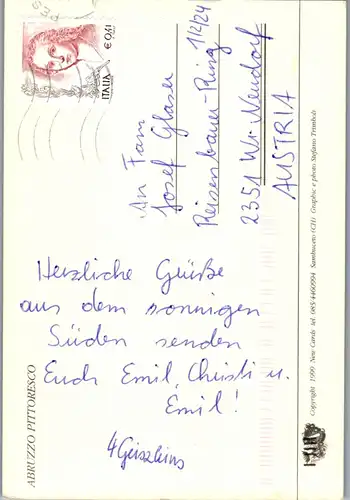 ITALIA
€ 0,41
An Fam.
Josef Glaser
Reisenbauer-Ring 1/2/24
2351 Wr. Neudorf
AUSTRIA
Herzliche Grüße
aus dem sonnigen
Süden senden
Euch Emil, Christi u.
Emil!
ABRUZZO PITTORESCO
Copyright 1999 New Cards tel. 085/4460994 Sambuceto (CH) Graphic e photo Stefano Trimboli